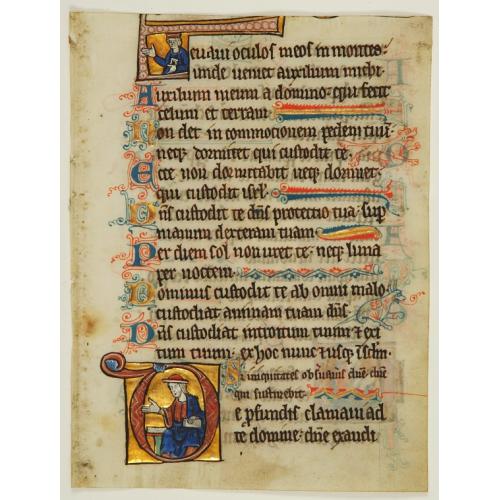 Leuaui oculos meos in montes:
unde ueniet auxilium michi.
Auxilium meum a domino: qui fecit
celum et terram.
Non det in commotionem pedem tuū:
neq; dormitet qui custodit te.
Ecce non dormitabit neq; dormiet:
qui custodit isrl.
Dn̄s custodit te dn̄s protectio tua: sup
manum dexteram tuam.
Per diem sol non uret te: neq; luna
per noctem.
Dominus custodit te ab omni malo:
custodiat animam tuam dn̄s.
Dn̄s custodiat introitum tuum ⁊ exi
tum tuum: ex hoc nunc ⁊ usq; in sclm.
Si iniquitates obseruauis dn̄e: dn̄e
quis sustinebit.
De ꝓfundis clamaui ad
te domine: dn̄e exaudi